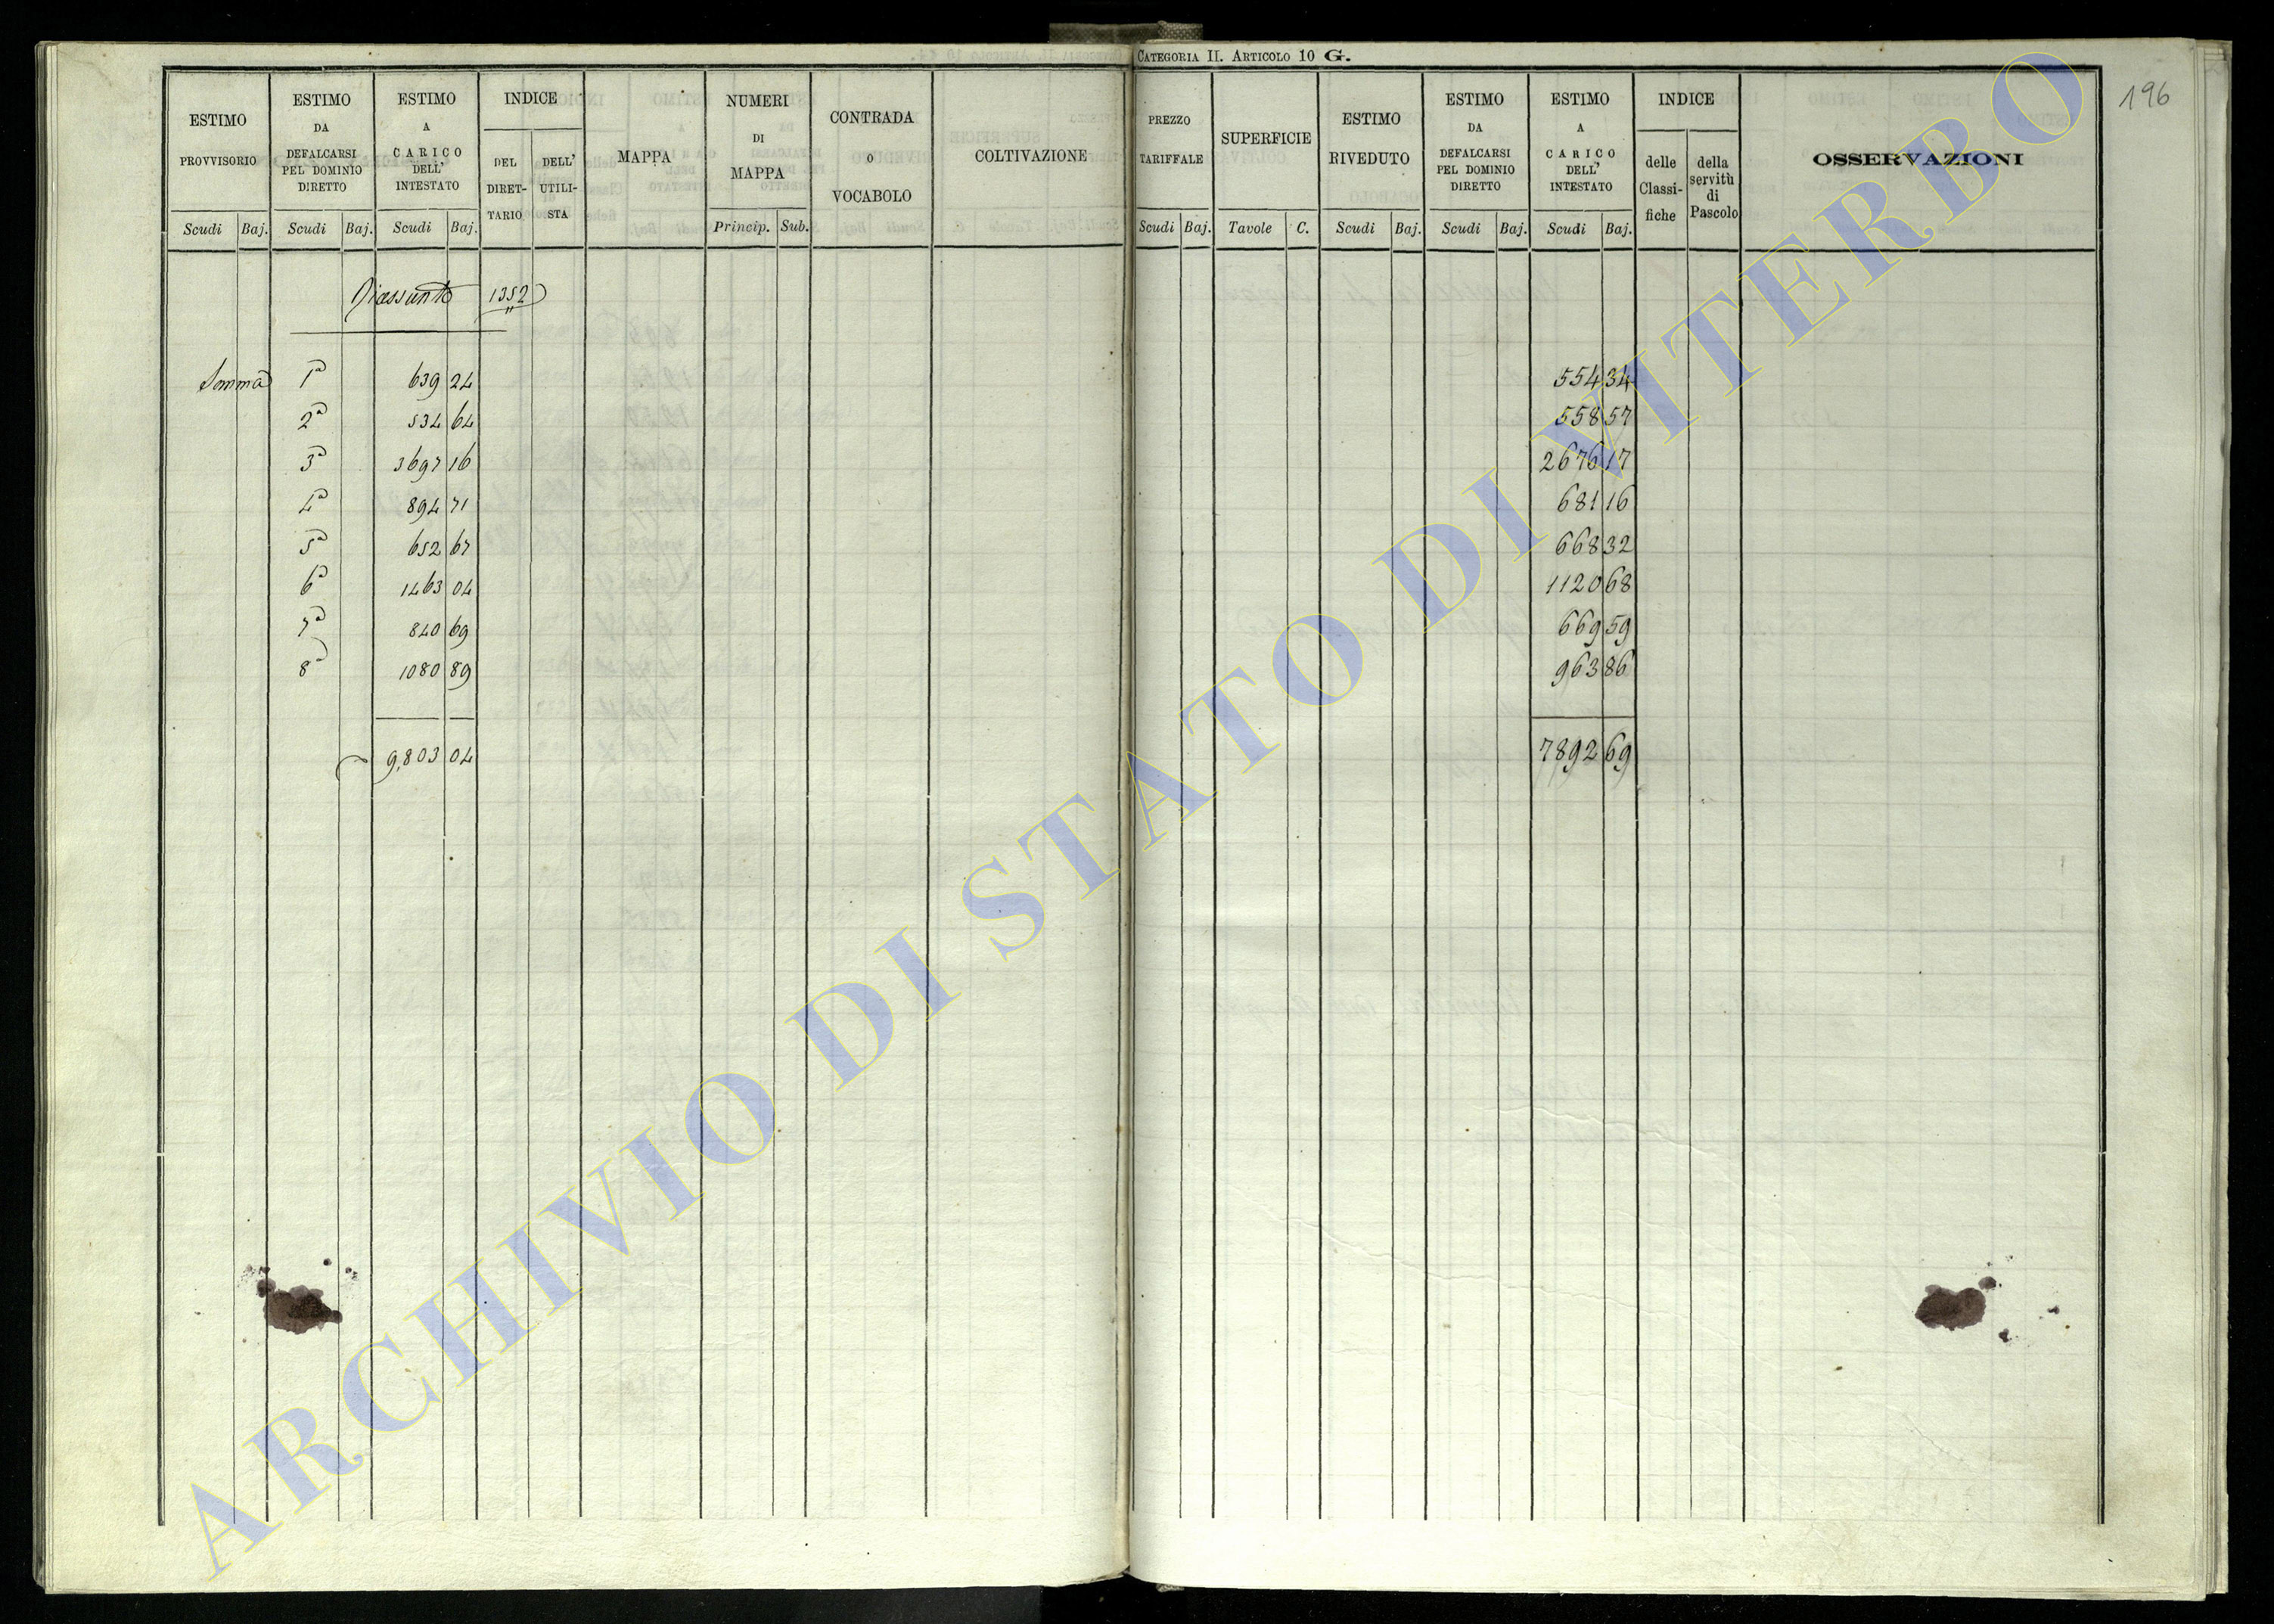 CATEGORIA II. ARTICOLO 10 G.
196
ESTIMO PROVVISORIO
Scudi Baj.
ESTIMO DA DEFALCARSI PEL DOMINIO DIRETTO
Scudi Baj.
ESTIMO A CARICO DELL' INTESTATO
Scudi Baj.
INDICE
DEL DIRET-TARIO
DELL' UTILI-STA
MAPPA
NUMERI DI MAPPA
Princip. Sub.
CONTRADA O VOCABOLO
COLTIVAZIONE
PREZZO TARIFFALE
Scudi Baj.
SUPERFICIE
Tavole C.
ESTIMO RIVEDUTO
Scudi Baj.
ESTIMO DA DEFALCARSI PEL DOMINIO DIRETTO
Scudi Baj.
ESTIMO A CARICO DELL' INTESTATO
Scudi Baj.
INDICE
delle Classi-fiche
della servitù di Pascolo
OSSERVAZIONI
Riassunto 1352
Somma 1a 639 24 554 34
2a 534 64 558 57
3a 3697 16 2676 17
4a 894 71 681 16
5a 652 67 668 32
6a 1463 04 1120 68
7a 840 69 669 59
8a 1080 89 963 86
9,803 04 7892 69
ARCHIVIO DI STATO DI VITERBO